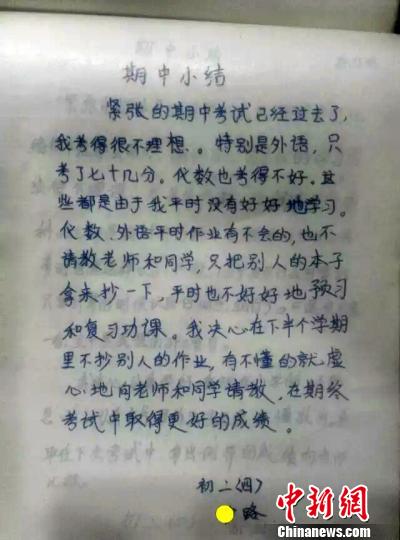 期中小结
紧张的期中考试已经过去了,
我考得很不理想.。特别是外语,只
考了七十几分。代数也考得不好。这
些都是由于我平时没有好好地学习。
代数、外语平时作业有不会的,也不
请教老师和同学,只把别人的本子
拿来抄一下,平时也不好好地预习
和复习功课。我决心在下半个学期
里不抄别人的作业,有不懂的就虚
心地向老师和同学请教,在期终
考试中取得更好的成绩。
初二(四)
路
中新网
www.chinanews.com